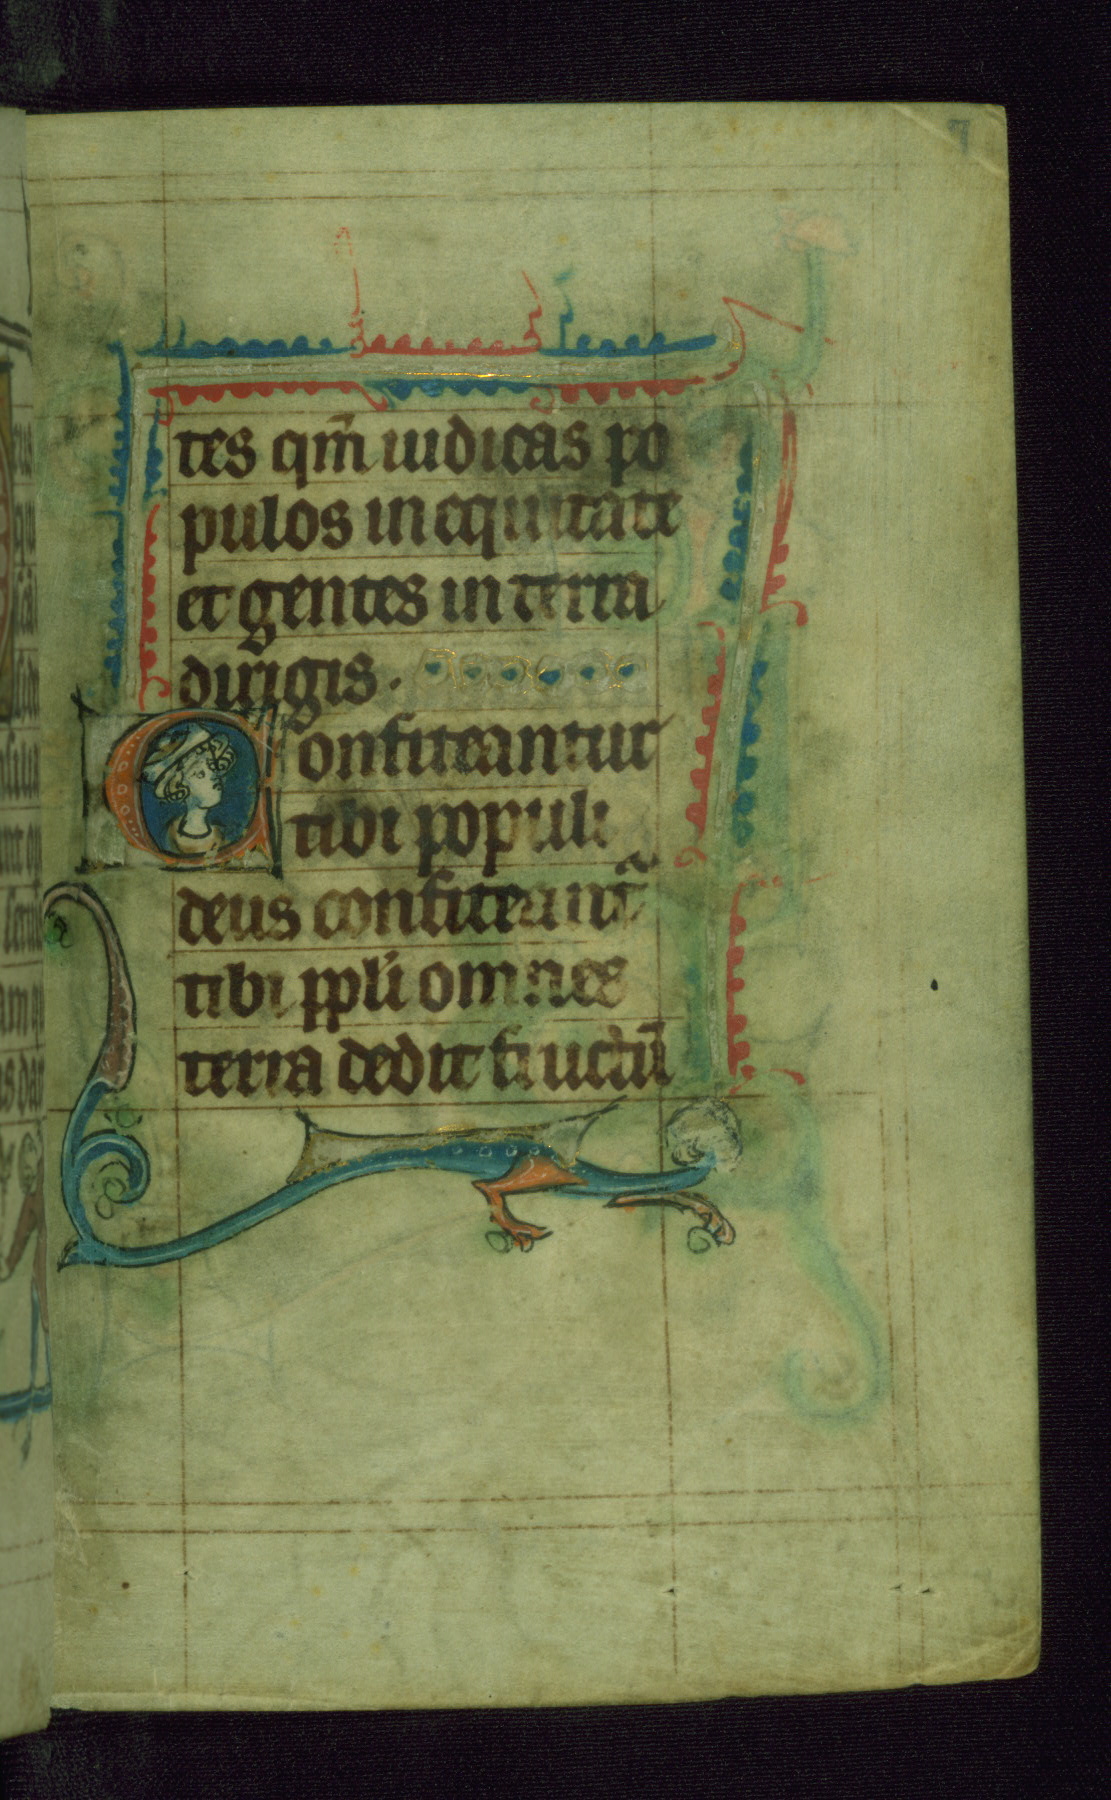 7
tes qm̄ iudicas po
pulos in equitate
et gentes in terra
dirigis.
Confiteantur
tibi populi
deus confiteant᷑
tibi ppl̄i omnes
terra dedit fructū